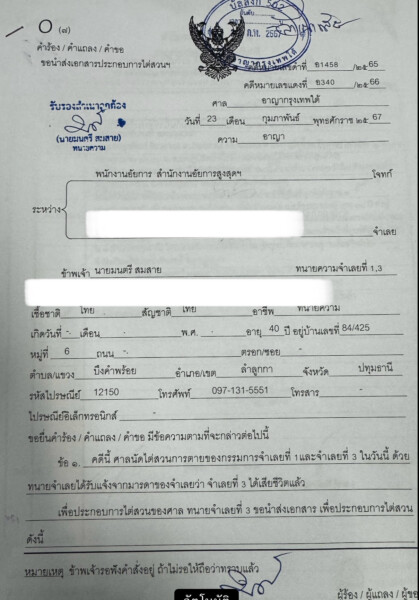 ○ (๗)
คำร้อง / คำแถลง / คำขอ
ขอนำส่งเอกสารประกอบการไต่สวนฯ
ก.พ. 2567
ที่ อ1458 /๒๕65
คดีหมายเลขแดงที่ อ340 /๒๕66
รับรองสำเนาถูกต้อง
(นายมนตรี สมสาย)
ทนายความ
ศาล อาญากรุงเทพใต้
วันที่ 23 เดือน กุมภาพันธ์ พุทธศักราช ๒๕ 67
ความ อาญา
พนักงานอัยการ สำนักงานอัยการสูงสุดฯ โจทก์
ระหว่าง
จำเลย
ข้าพเจ้า นายมนตรี สมสาย ทนายความจำเลยที่ 1,3
เชื้อชาติ ไทย สัญชาติ ไทย อาชีพ ทนายความ
เกิดวันที่ - เดือน - พ.ศ. - อายุ 40 ปี อยู่บ้านเลขที่ 84/425
หมู่ที่ 6 ถนน - ตรอก/ซอย -
ตำบล/แขวง บึงคำพร้อย อำเภอ/เขต ลำลูกกา จังหวัด ปทุมธานี
รหัสไปรษณีย์ 12150 โทรศัพท์ 097-131-5551 โทรสาร -
ไปรษณีย์อิเล็กทรอนิกส์ -
ขอยื่นคำร้อง / คำแถลง / คำขอ มีข้อความตามที่จะกล่าวต่อไปนี้
ข้อ ๑. คดีนี้ ศาลนัดไต่สวนการตายของกรรมการจำเลยที่ 1และจำเลยที่ 3 ในวันนี้ ด้วย
ทนายจำเลยได้รับแจ้งจากมารดาของจำเลยว่า จำเลยที่ 3 ได้เสียชีวิตแล้ว
เพื่อประกอบการไต่สวนของศาล ทนายจำเลยที่ 3 ขอนำส่งเอกสาร เพื่อประกอบการไต่สวน
ดังนี้
หมายเหตุ ข้าพเจ้ารอฟังคำสั่งอยู่ ถ้าไม่รอให้ถือว่าทราบแล้ว
ผู้ร้อง / ผู้แถลง / ผู้ขอ